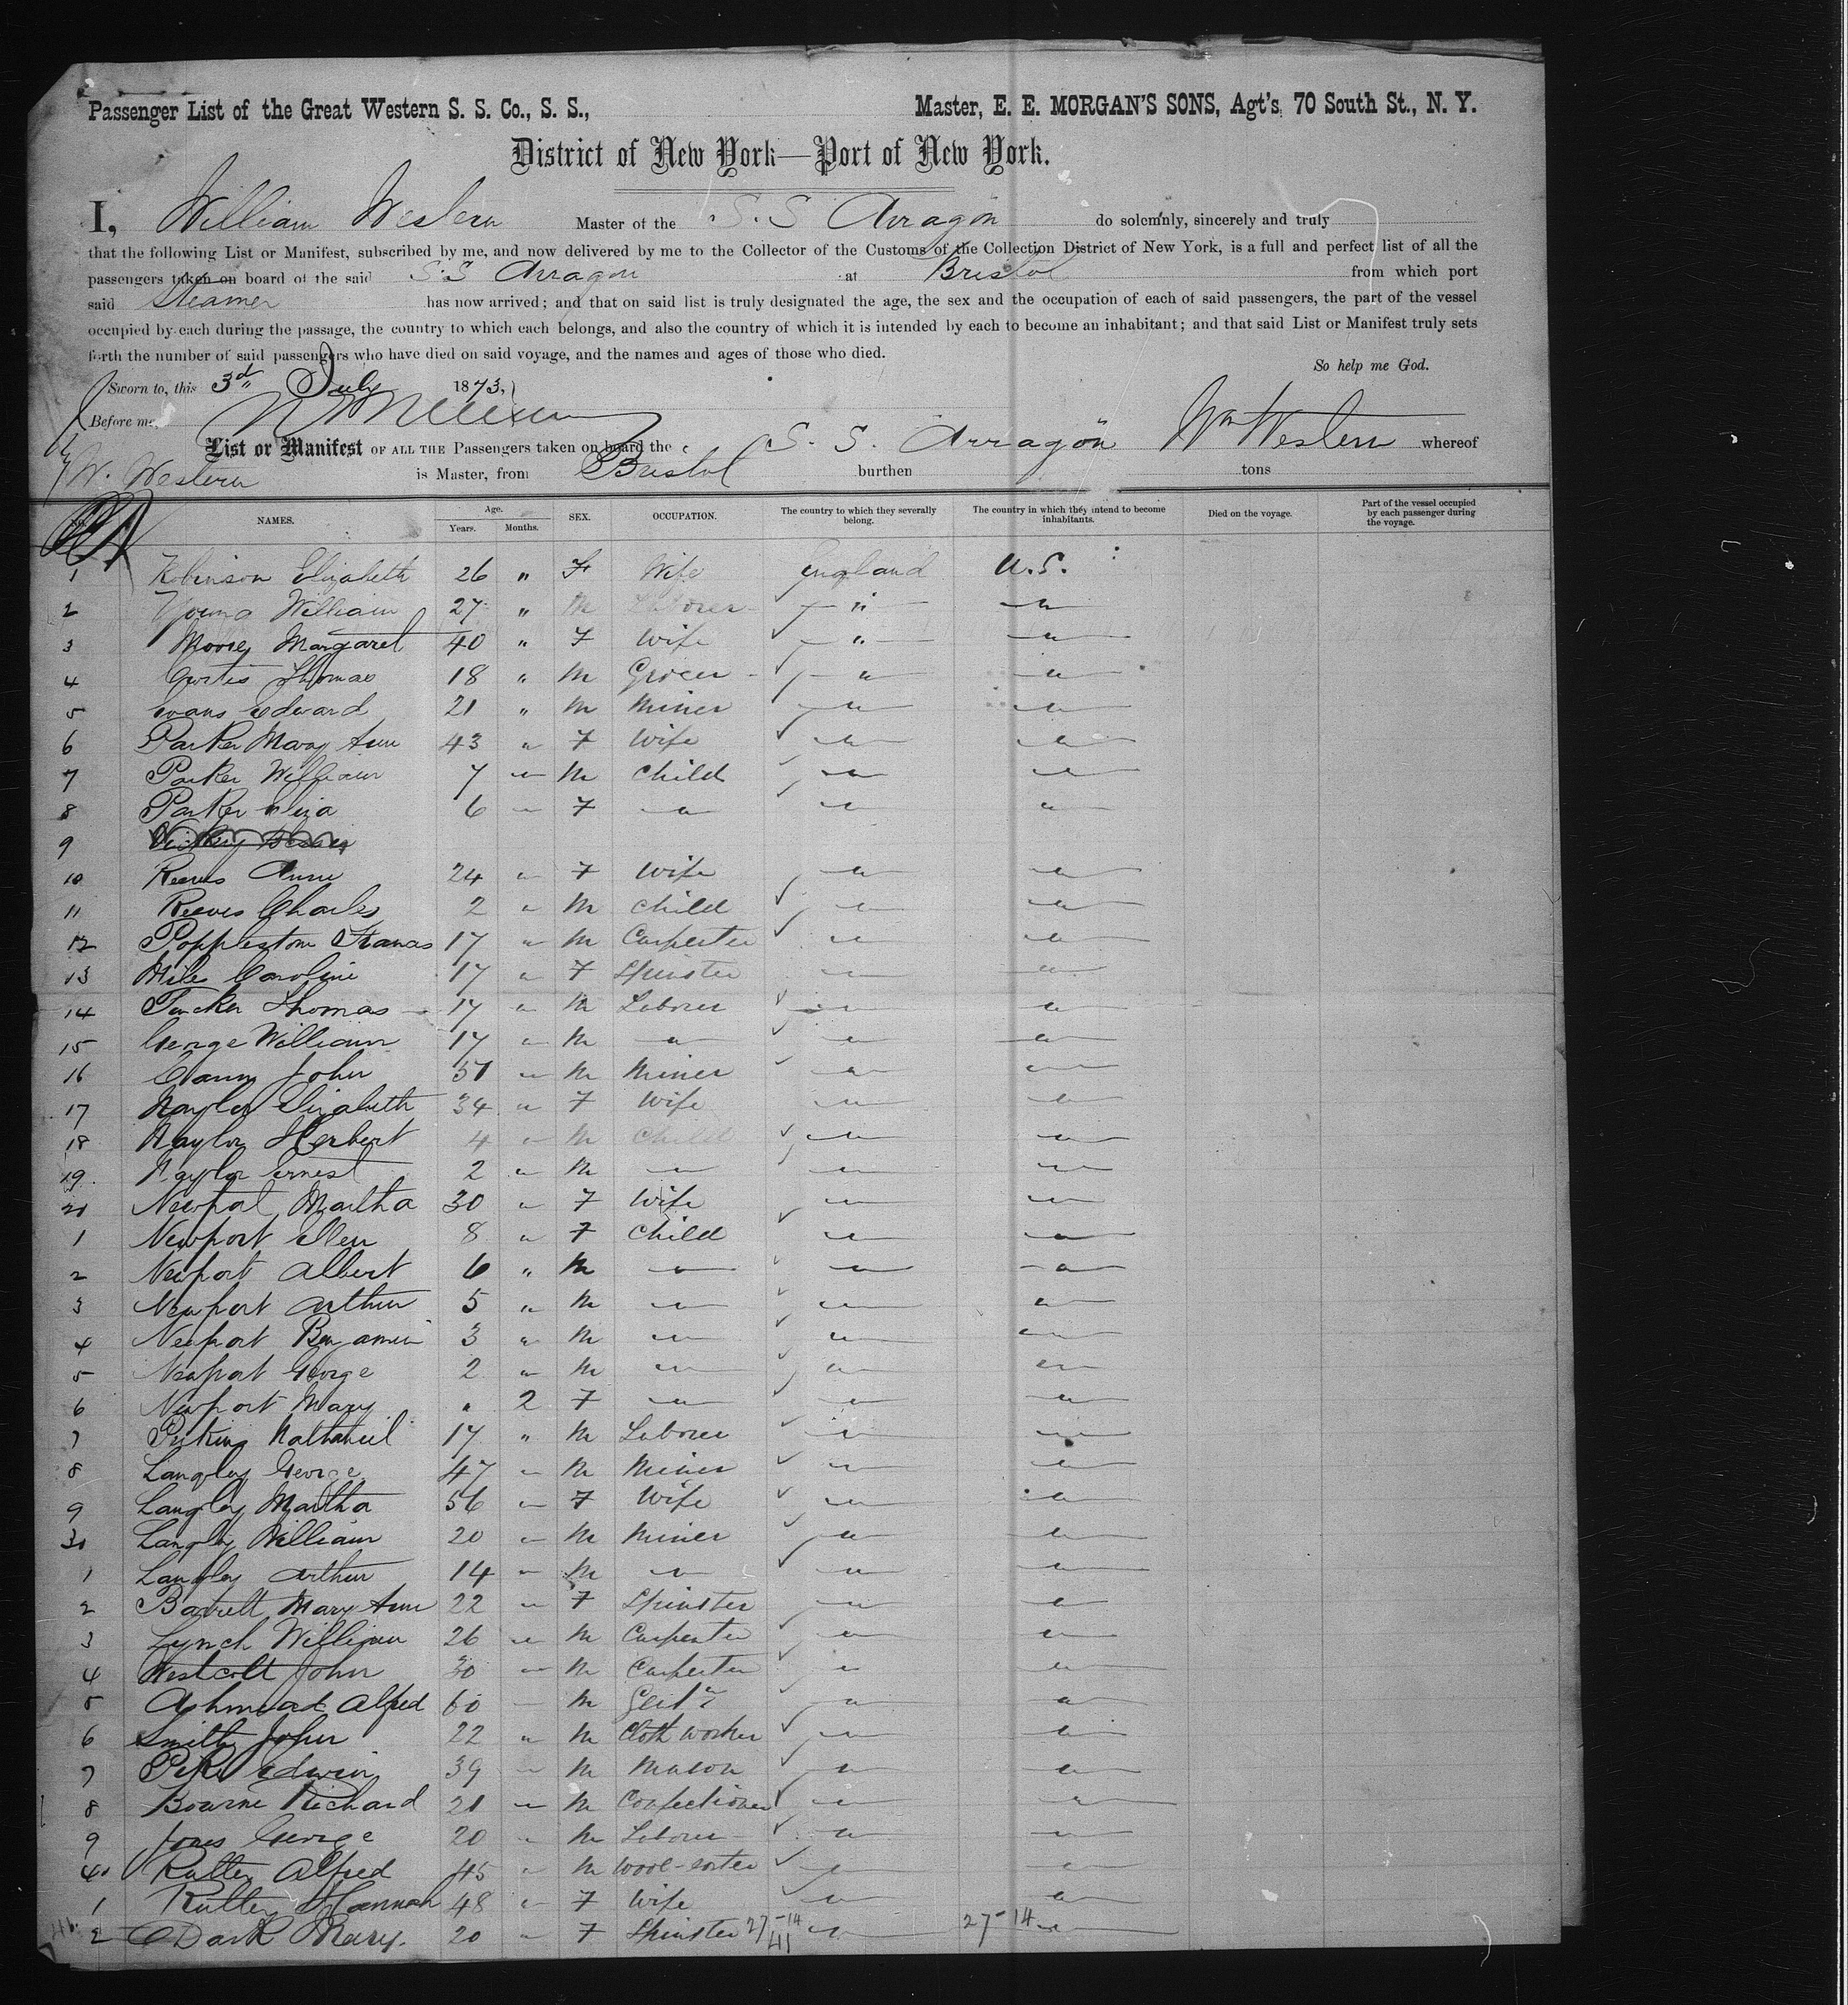 Passenger List of the Great Western S. S. Co., S. S., Master, E. E. MORGAN'S SONS, Agt's, 70 South St., N. Y.
District of New York—Port of New York.
I, William Western Master of the S. S Arragon do solemnly, sincerely and truly
that the following List or Manifest, subscribed by me, and now delivered by me to the Collector of the Customs of the Collection District of New York, is a full and perfect list of all the
passengers taken on board of the said S.S Arragon at Bristol from which port
said Steamer has now arrived; and that on said list is truly designated the age, the sex and the occupation of each of said passengers, the part of the vessel
occupied by each during the passage, the country to which each belongs, and also the country of which it is intended by each to become an inhabitant; and that said List or Manifest truly sets
forth the number of said passengers who have died on said voyage, and the names and ages of those who died.
So help me God.
Sworn to, this 3d July 1873.
Before me,
List or Manifest OF ALL THE Passengers taken on board the S. S. Arragon Wm Western whereof
W. Western is Master, from Bristol burthen tons
No. NAMES. Age. Years. Months. SEX. OCCUPATION. The country to which they severally belong. The country in which they intend to become inhabitants. Died on the voyage. Part of the vessel occupied by each passenger during the voyage.
1 Robinson Elizabeth 26 " F Wife England U.S.
2 Young William 27 " M Laborer " "
3 Moore Margaret 40 " F Wife " "
4 Curtis Thomas 18 " M Grocer " "
5 Evans Edward 21 " M Miner " "
6 Parker Mary Ann 43 " F Wife " "
7 Parker William 7 " M Child " "
8 Parker Eliza 6 " F " " "
9
10 Reeves Annie 24 " F Wife " "
11 Reeves Charles 2 " M Child " "
12 Popplestone Francis 17 " M Carpenter " "
13 Caroline 17 " F Spinster " "
14 Tucker Thomas 17 " M Laborer " "
15 George William 17 " M " " "
16 Cann John 51 " M Miner " "
17 Naylor Elizabeth 34 " F Wife " "
18 Naylor Herbert 4 " M Child " "
19 Naylor Ernest 2 " M " " "
20 Newport Martha 30 " F Wife " "
1 Newport Ellen 8 " F Child " "
2 Newport Albert 6 " M " " "
3 Newport Arthur 5 " M " " "
4 Newport Benjamin 3 " M " " "
5 Newport George 2 " M " " "
6 Newport Mary " 2 F " " "
7 Perkins Nathaniel 17 " M Laborer " "
8 Langley George 47 " M Miner " "
9 Langley Martha 56 " F Wife " "
30 Langley William 20 " M Miner " "
1 Langley Arthur 14 " M " " "
2 Barrett Mary Ann 22 " F Spinster " "
3 Lynch William 26 " M Carpenter " "
4 Westcott John 30 " M Carpenter " "
5 Ashmead Alfred 60 M Gent " "
6 Smith John 22 " M Cloth worker " "
7 Pike Edwin 39 " M Mason " "
8 Bourne Richard 21 " M Confectioner " "
9 Jones George 20 " M Laborer " "
40 Rutter Alfred 45 " M Wool-sorter " "
1 Rutter Hannah 48 " F Wife " "
2 Dark Mary. 20 " F Spinster 27-14 " 27-14 "
41